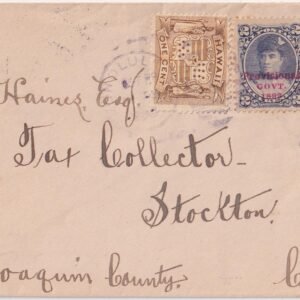 ONE CENT
HAWAII
Provisional
GOVT.
1893
Haines, Esq.
Tax Collector
Stockton.
Joaquin County.
C